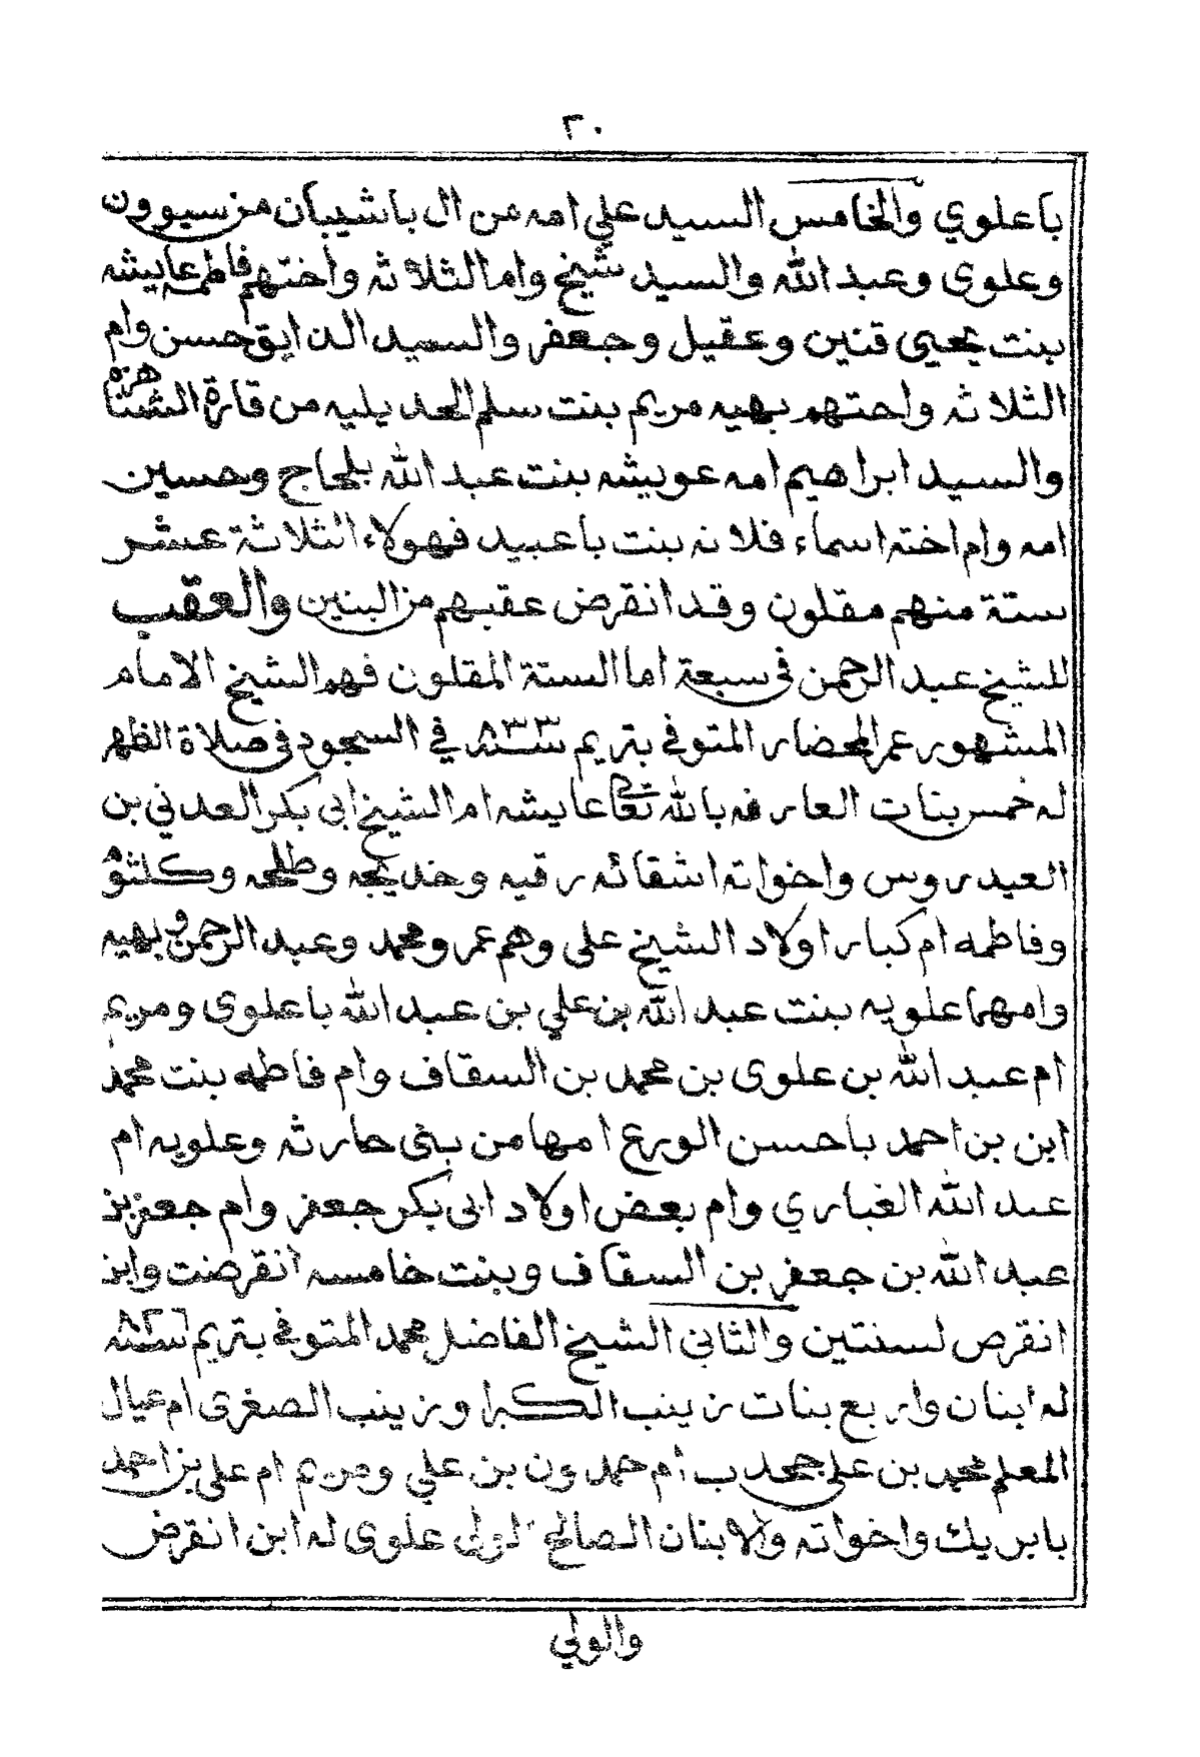 ٣٠
باعلوي والخامس السيد علي امه من ال باشيبان من سيوون
وعلوى وعبد الله والسيد شيخ وام الثلاثه واختهم فاطمه عايشه
بنت يحيى قنين وعقيل وجعفر والسيد الذايق حسن وام
الثلاثه واختهم بهيه مريم بنت سلم الحديليه من قارة الشنا هزه
والسيد ابراهيم امه عويشه بنت عبد الله بلحاج وحسين
امه وام اخته اسماء فلانه بنت باعبيد فهولاء الثلاثة عشر
ستة منهم مقلون وقد انقرض عقبهم من البنين والعقب
للشيخ عبد الرحمن فى سبعة اما الستة المقلون فهم الشيخ الامام
المشهور عمر المحضار المتوفي بتريم سنه ٨٣٣ في السجود فى صلاة الظهر
له خمس بنات العارفه بالله تعالى عايشه ام الشيخ ابي بكر العدني بن
العيدروس واخواته اشقائه رقيه وخديجه وطلحه وكلثوم
وفاطمه ام كبار اولاد الشيخ على وهم عمر ومحمد وعبد الرحمن وبهيه
وامهما علويه بنت عبد الله بن علي بن عبد الله باعلوى ومريم
ام عبد الله بن علوى بن محمد بن السقاف وام فاطمه بنت محمد
ابن بن احمد باحسن الورع امها من بنى حارثه وعلويه ام
عبد الله الغباري وام بعض اولاد ابى بكر جعفر وام جعفر بن
عبد الله بن جعفر بن السقاف وبنت خامسه انقرضت وابن
انقرض لسنتين والثاني الشيخ الفاضل محمد المتوفي بتريم سنه ٨٢٦
له ابنان واربع بنات زينب الكبرا وزينب الصغرى ام عيال
المعلم محمد بن على جحدب ام حمدون بن علي ومريم ام على بن احمد
بابريك واخواته والابنان الصالح الولي علوى له ابن انقرض
والولي